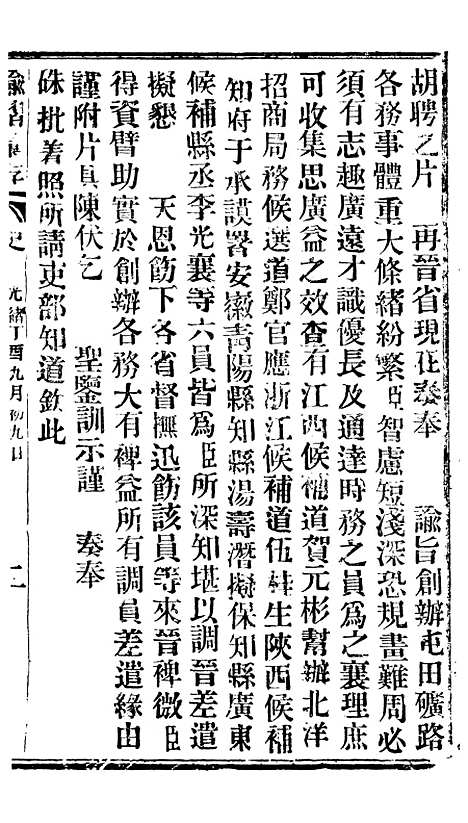 胡聘之片　再晉省現在奏奉　諭旨創辦屯田礦路
各務事體重大條緒紛繁臣智慮短淺深恐規畫難周必
須有志趣廣遠才識優長及通達時務之員爲之襄理庶
可收集思廣益之效查有江西候補道賀元彬幫辦北洋
招商局務候選道鄭官應浙江候補道伍桂生陝西候補
知府于承謨署安徽靑陽縣知縣湯壽潛擬保知縣廣東
候補縣丞李光襄等六員皆爲臣所深知堪以調晉差遣
擬懇　天恩飭下各省督撫迅飭該員等來晉裨微臣
得資臂助實於創辦各務大有裨益所有調員差遣緣由
謹附片具陳伏乞　聖鑒訓示謹　奏奉
硃批着照所請吏部知道欽此
諭摺彙存　史　光緒丁酉九月初九日　二